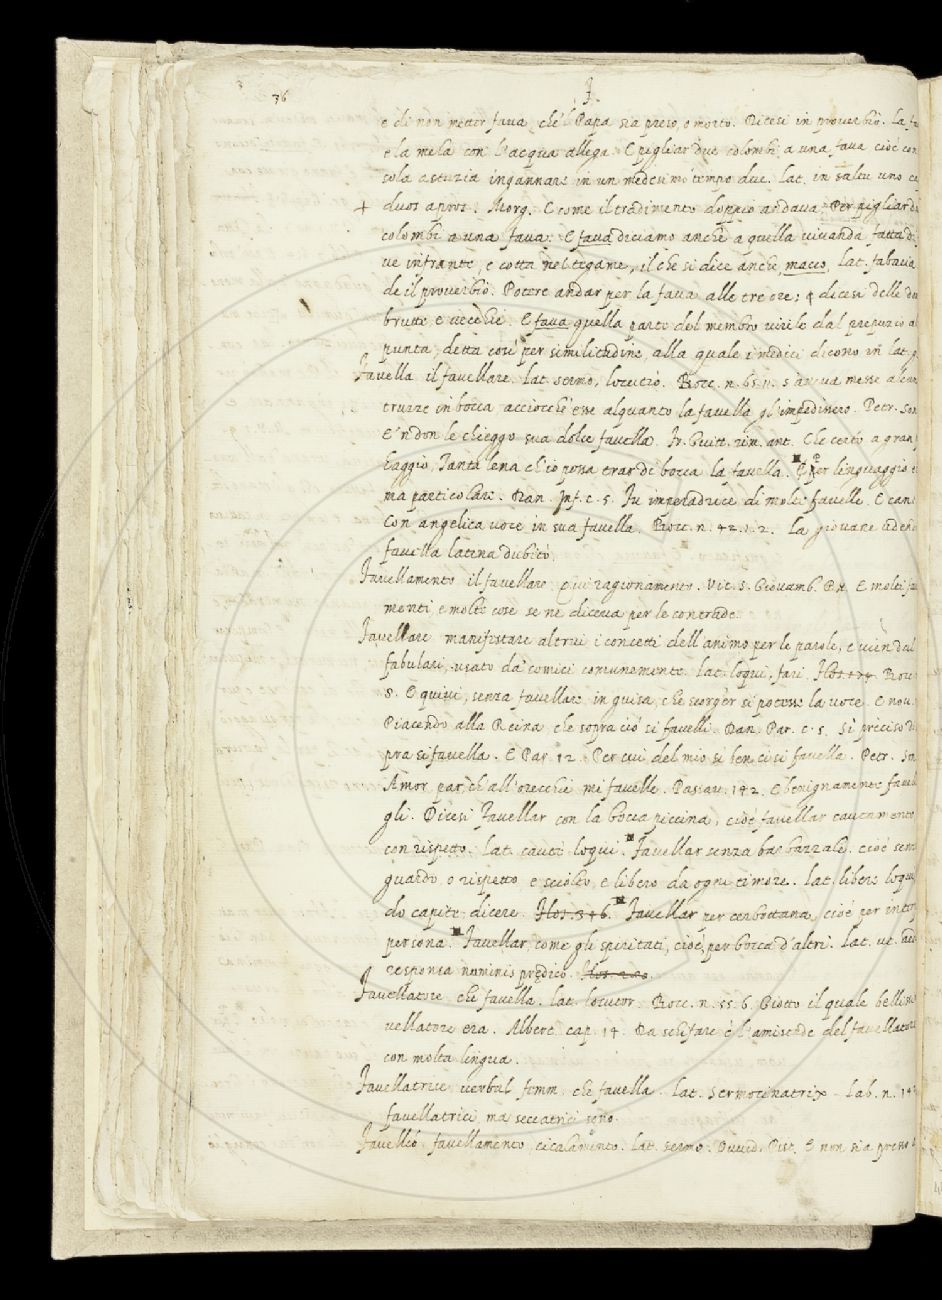 36
F.
e di non metter fava, che'l Papa sia preso, o morto. Dicesi in proverbio. La
e la mela con l'acqua allega. E pigliar due colombi a una fava cioè con
sola astuzia ingannare in un medesimo tempo due. Lat. in saltu uno
+ duos apros. Morg. E come il tradimento doppio andava, Per pigliar
colombi a una fava. E fava diciamo anche a quella vivanda fatta di
ve infrante, e cotta nel tegame, il che si dice anche, macco, lat. fabacia
de il proverbio. Potere andar per la fava alle tre ore; dicesi delle
brutte e vecchie. E fava quella parte del membro virile dal prepuzio
punta, detta così per similitudine, alla quale i medici dicono in lat.
Favella il favellare. Lat. sermo, locutio. Bocc. n. 65. s'aveva messe
truzze in bocca acciocchè esse alquanto la favella gl'impedissero. Petr.
E'n don le chieggo sua dolce favella. Fr. Guitt. rim. ant. Che certo a gran
Tanta lena ch'io possa trar di bocca la favella. E per linguaggio
ma particolare. Dan. Inf. c. 5. Fu imperadrice di molte favelle. E can.
Con angelica voce in sua favella. Bocc. n. 42. La giovane udendo
favella latina dubitò.
Favellamento il favellare, e ragionamento. Vit. S. Giovamb. E molti
menti e molte cose se ne diceva per le contrade.
Favellare manifestare altrui i concetti dell'animo per le parole, e vien dal
fabulari, usato da' comici comunemente. Lat. loqui, fari. Bocc.
8. E quivi, senza favellare in guisa, che scorger si potesse la voce. E nov.
Piacendo alla Reina, che sopra ciò si favelli. Dan. Par. c. 5. Sì preciso di
pra si favella. E Par. 12. Per cui del mio si ben ci si favella. Petr.
Amor, par, ch'all'orecchie mi favelle. Passav. 142. E benignamente
gli. Dicesi Favellar con la bocca piccina, cioè favellar cautamente
con rispetto. Lat. caute loqui. Favellar senza barbazzale, cioè senza
guardo, o rispetto e sciolto, e libero da ogni timore. Lat. libere
do capite dicere. Favellar per cerbottana, cioè per
persona. Favellar, come gli spiritati, cioè, per bocca d'altri. Lat. ut.
responsa numinis
Favellatore che favella. Lat. locutor. Bocc. n. 55. 6. Giotto il quale
vellatore era. Alberc. cap. 14. Da schifare è l'amistade del favellatore
con molta lingua.
Favellatrice verbal femm. che favella. Lat. sermocinatrix. Lab. n.
favellatrici, ma seccatrici sono.
Favellio favellamento, cicalamento. Lat. sermo. E non sia presso